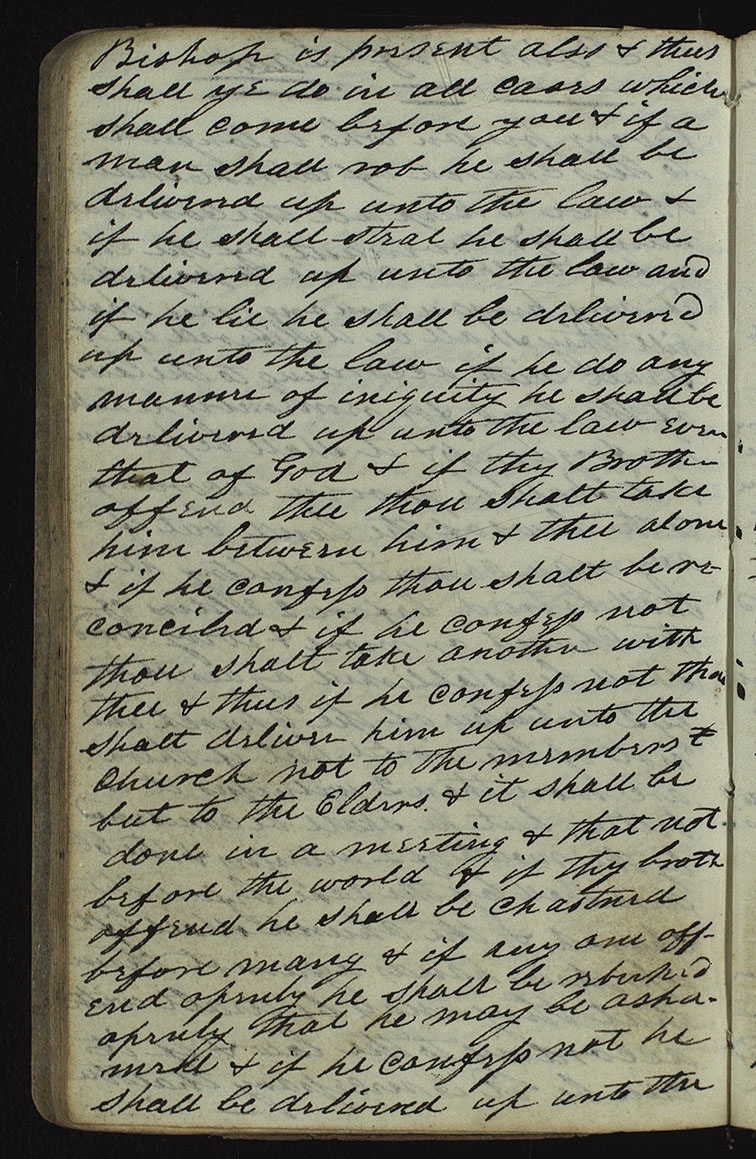 Bishop is present also & thus
shall ye do in all cases which
shall come before you & if a
man shall rob he shall be
delivered up unto the law &
if he shall steal he shall be
delivered up unto the law and
if he lie he shall be delivered
up unto the law if he do any
manner of iniquity he shall be
delivered up unto the law even
that of God & if thy Brother
offend thee thou shalt take
him between him & thee alone
& if he confess thou shalt be re-
conciled & if he confess not
thou shalt take another with
thee & thus if he confess not thou
shalt deliver him up unto the
church not to the members &
but to the Elders. & it shall be
done in a meeting & that not
before the world & if thy broth
offend he shall be chastned
before many & if any one off-
end openly he shall be rebuked
openly that he may be asha-
med & if he confess not he
shall be delivered up unto the